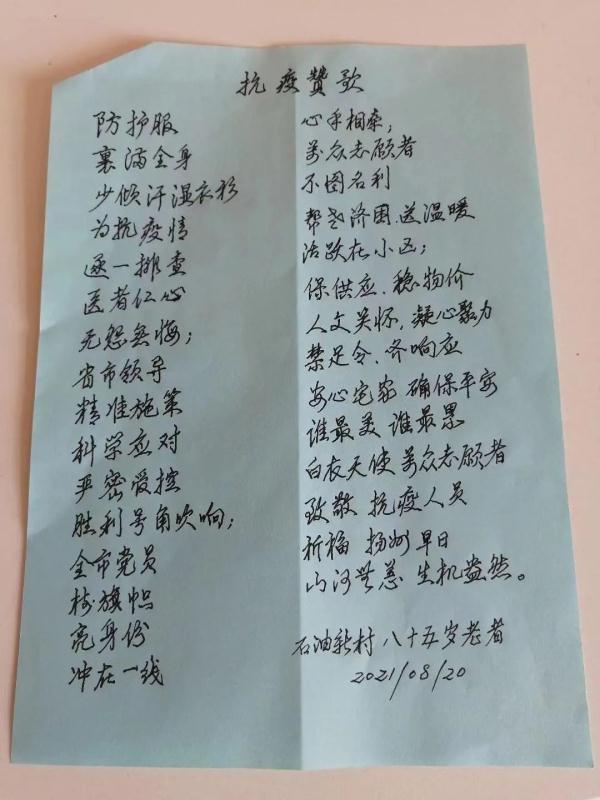 抗疫赞歌
防护服
裹满全身
少倾汗湿衣衫
为抗疫情
逐一排查
医者仁心
无怨無悔；
省市领导
精准施策
科学应对
严密爱控
胜利号角吹响；
全市党员
树旗帜
亮身份
冲在一线
心手相牵，
万众志愿者
不图名利
帮老济困．送温暖
活跃在小区；
保供应．稳物价
人文关怀，凝心聚力
禁足令．齐响应
安心宅家 确保平安
谁最美 谁最累
白衣天使 万众志愿者
致敬 抗疫人员
祈福 扬州早日
山河无恙 生机盎然。
石油新村 八十五岁老者
2021/08/20